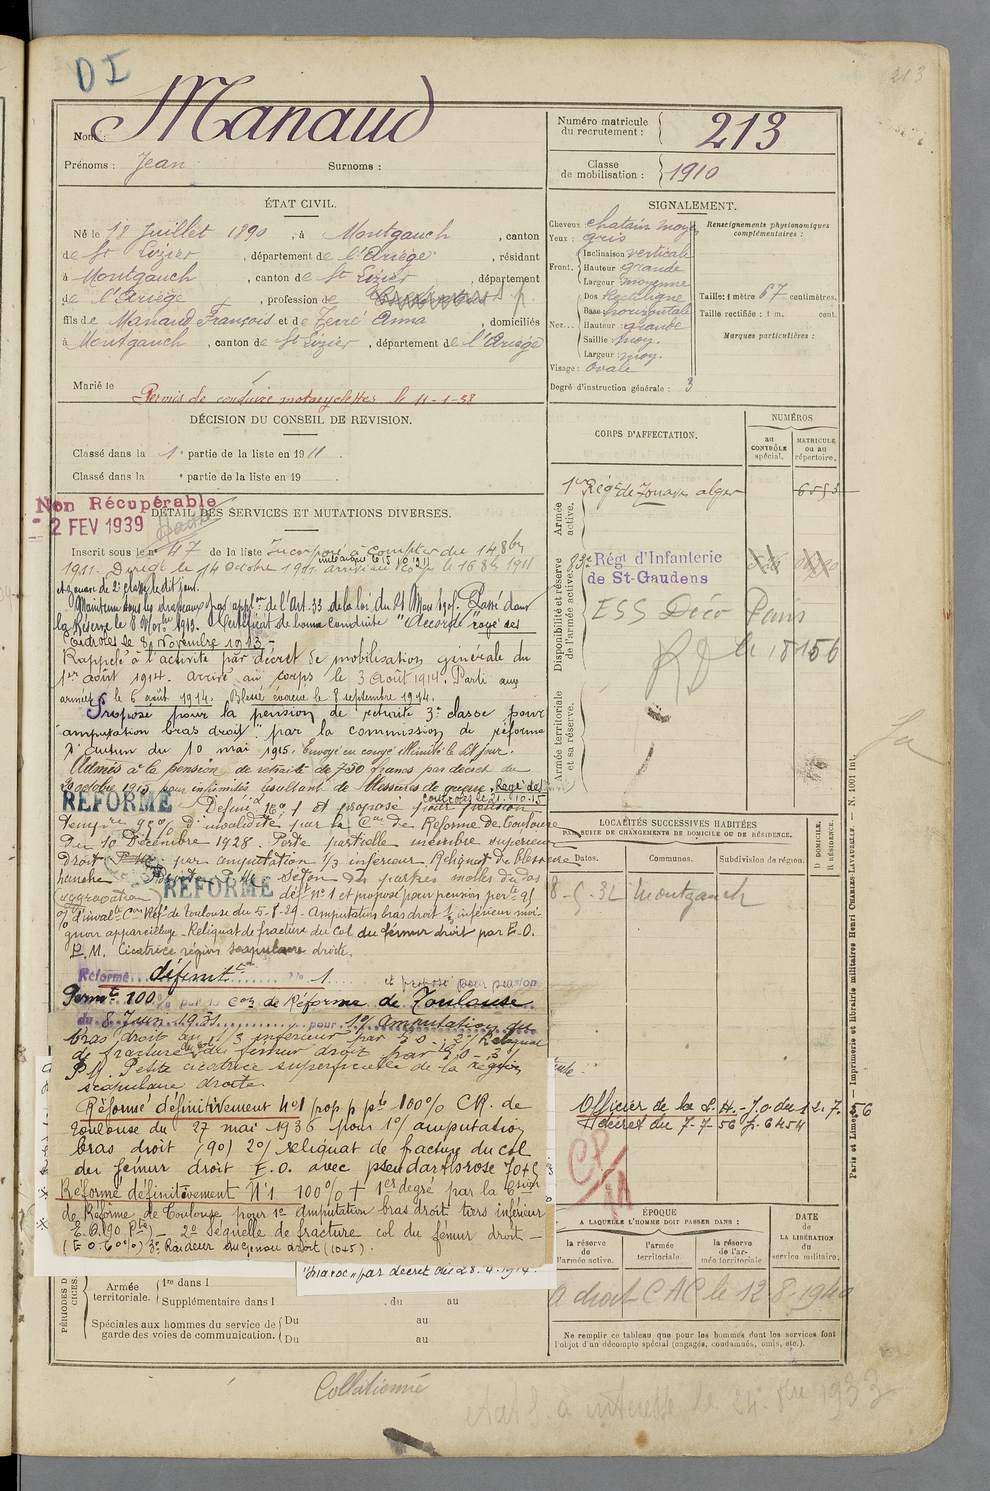 213
D I
Nom : Manaud
Prénoms : Jean Surnoms :
Numéro matricule du recrutement : 213
Classe de mobilisation : 1910
ÉTAT CIVIL.
Né le 12 Juillet 1890, à Montgauch, canton
de St Lizier, département de l'Ariège, résidant
à Montgauch, canton de St Lizier, département
de l'Ariège, profession de
fils de Manaud François et de Terré Anna, domiciliés
à Montgauch, canton de St Lizier, département de l'Ariège
Marié le
Permis de conduire motocyclettes le 11-1-38
SIGNALEMENT.
Cheveux : chatain moyen
Yeux : gris
Front. Inclinaison verticale
Hauteur grande
Largeur moyenne
Nez... Dos rectiligne
Base horizontale
Hauteur grande
Saillie moy.
Largeur moy.
Visage : ovale
Renseignements physionomiques complémentaires :
Taille : 1 mètre 67 centimètres.
Taille rectifiée : 1 m. cent.
Marques particulières :
Degré d'instruction générale : 3
DÉCISION DU CONSEIL DE REVISION.
Classé dans la 1e partie de la liste en 1911.
Classé dans la e partie de la liste en 19 .
Non Récupérable
- 2 FEV 1939
DÉTAIL DES SERVICES ET MUTATIONS DIVERSES.
Inscrit sous le n° 47 de la liste Incorporé à compter du 14 8bre
1911. Dirigé le 14 Octobre 1911 arrivé au corps le 16 8bre 1911
et zouave de 2e classe le dit jour.
Maintenu sous les drapeaux par appon de l'Art. 33 de la loi du 21 Mars 1905. Passé dans
la Réserve le 8 Novbre 1913. Certificat de bonne conduite "Accordé" rayé des
Controles le 8 Novembre 1913.-
Rappelé à l'activité par décret de mobilisation générale du
1er août 1914. arrivé au corps le 3 Août 1914. Parti aux
armées le 6 août 1914. Blessé, évacué le 8 septembre 1914.
Proposé pour la pension de retraite 3e classe pour
"amputation bras droit" par la commission de réforme
d'autun du 10 mai 1915. Envoyé en congé illimité le dit jour.
Admis à la pension de retraite de 750 francs par décret du
octobre 1915 pour infirmités résultant de blessures de guerre. Rayé des
controles le 31.10.15
RÉFORMÉ
Définé n° 1 et proposé pour pension
tempre 95% d'invalidité par la Con de Réforme de Toulouse
du 10 Décembre 1928. Perte partielle membre supérieur
droit par amputation 1/3 inférieur. Reliquat de blessure
hanche droite. P.M. Séton des parties molles du dos
RÉFORMÉ
(aggravation) déft n° 1 et proposé pour pension perte 95
% d'invalté Con Réf. de Toulouse du 5-8-29. Amputation bras droit 1/3 inférieur moi-
gnon appareillage. Reliquat de fracture du Col du fémur droit par E.O.
P.M. Cicatrice région scapulaire droite.
Réformé définitt n° 1 et proposé pour pension
Permte 100% par la Con de Réforme de Toulouse
du 8 Juin 1931 pour 1°/ amputation du
bras droit au 1/3 inférieur par E.O. 2°/ Reliquat
de fracture du col du fémur droit par E.O. - 3°/
P.M. Petite cicatrice superficielle de la région
scapulaire droite.
Réformé définitivement N°1 prop. p. pte 100% CR. de
Toulouse du 27 mai 1936 pour 1°/ amputation
bras droit (90) 2°/ reliquat de fracture du col
du fémur droit E.O. avec pseudarthrose 70+5
Réformé définitivement N°1 100% + 1er degré par la Con
de Réforme de Toulouse pour 1° Amputation bras droit tiers inférieur
E.O. 90 - 2° séquelle de fracture col du fémur droit -
(E.O. 60%) 3° Raideur du genou droit (10+5).
"Maroc" par décret du 28.4.1914.
CORPS D'AFFECTATION.
NUMÉROS
au CONTRÔLE spécial.
MATRICULE ou au répertoire.
Armée active.
1er Régt de Zouaves alger 6593
Disponibilité et réserve de l'armée active.
83e Régt d'Infanterie
de St-Gaudens
ESS Déco Paris
le 18156
Armée territoriale et sa réserve.
LOCALITÉS SUCCESSIVES HABITÉES
PAR SUITE DE CHANGEMENTS DE DOMICILE OU DE RÉSIDENCE.
Dates. Communes. Subdivision de région. D DOMICILE. R RÉSIDENCE.
8-5-32 Montgauch
Officier de la L.H. - J.O. du 12.7.56
décret du 7-7-56 p. 6454
ÉPOQUE
A LAQUELLE L'HOMME DOIT PASSER DANS :
la réserve de l'armée active.
l'armée territoriale.
la réserve de l'armée territoriale
DATE DE LA LIBÉRATION du service militaire.
A droit CAC le 12-8-1940
Ne remplir ce tableau que pour les hommes dont les services font
l'objet d'un décompte spécial (engagés, condamnés, omis, etc.).
PÉRIODES D
CICES.
Armée territoriale. 1re dans l
Supplémentaire dans l . du au
Spéciales aux hommes du service de garde des voies de communication. Du au
Du au
Collationné
Paris et Limoges. — Imprimerie et librairie militaires Henri CHARLES-LAVAUZELLE. — N. 1001 Int.